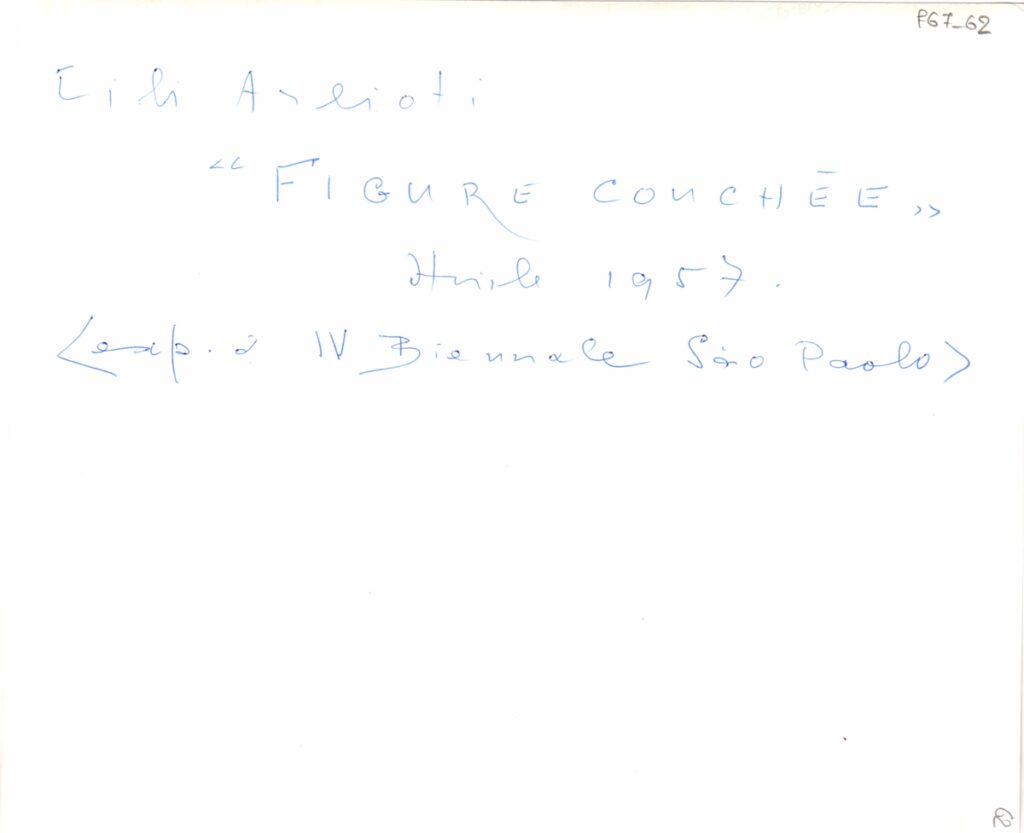 P67_62
Lili Arlioti
"FIGURE COUCHÉE"
Huile 1957.
<exp. à IV Biennale São Paolo>